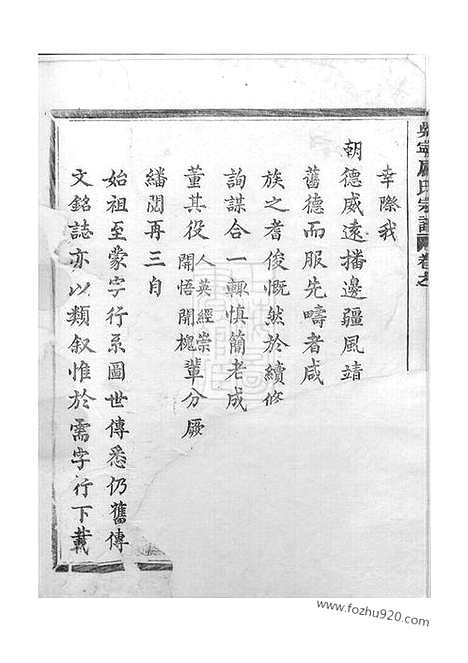 吳寧盧氏宗譜 卷之
幸際我
朝德威遠播邊疆風靖
舊德而服先疇者咸
族之耆俊慨然於續修
詢謀合一輒慎簡老成
董其役 人英經崇 開悟開槐 輩分厥
繙閱再三自
始祖至蒙字行系圖世傳悉仍舊傳
文銘誌亦以類叙惟於需字行下載
www.fozhu920.com